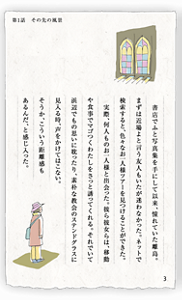 第1話 その先の風景
書店でふと写真集を手にして以来、憧れていた離島。
まずは近場よと言う友人もいたが迷わなかった。ネットで
検索すると、色々なお一人様ツアーを見つけることができた。
実際、何人ものお一人様と出会った。彼ら彼女らは、移動
や食事でマゴつくわたしをさっと誘ってくれる。それでいて
浜辺でもの思いに耽ったり、素朴な教会のステンドグラスに
見入る時、声をかけてはこない。
そうか、こういう距離感も
あるんだ、と感じ入った。
3